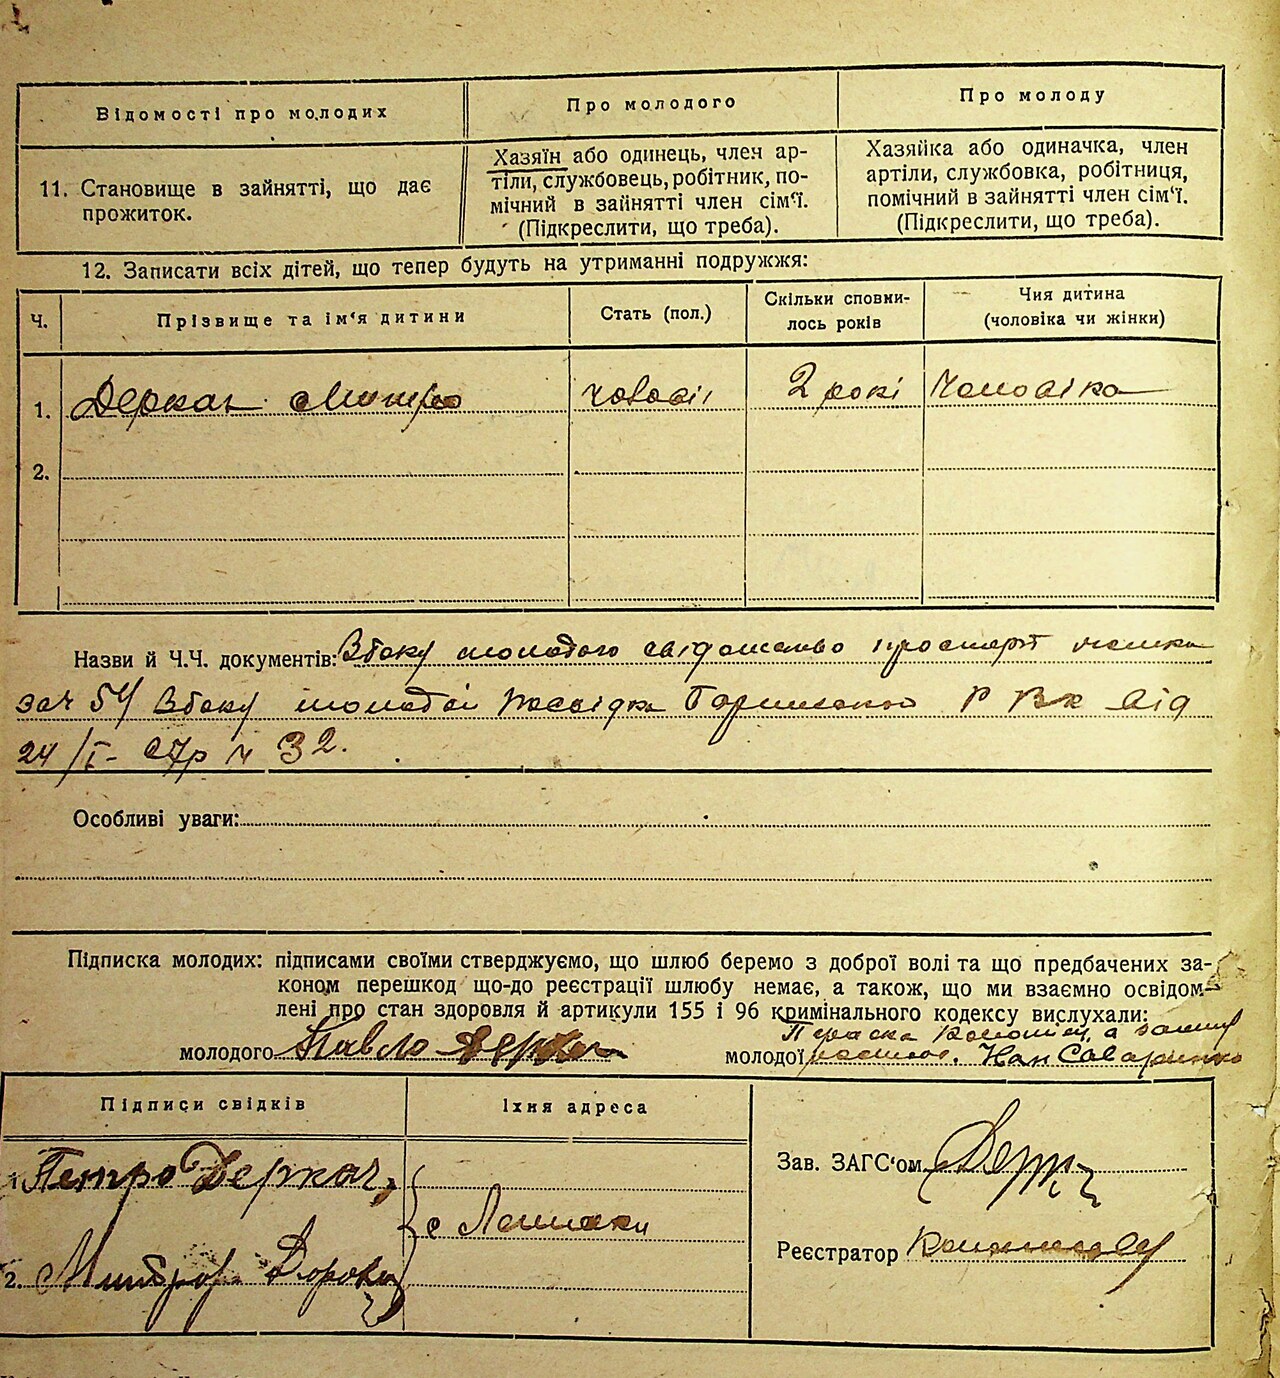 Відомості про молодих
Про молодого
Про молоду
11. Становище в зайнятті, що дає
прожиток.
Хазяїн або одинець, член ар-
тіли, службовець, робітник, по-
мічний в зайнятті член сім'ї.
(Підкреслити, що треба).
Хазяйка або одиначка, член
артіли, службовка, робітниця,
помічний в зайнятті член сім'ї.
(Підкреслити, що треба).
12. Записати всіх дітей, що тепер будуть на утриманні подружжя:
Ч.
Прізвище та ім'я дитини
Стать (пол.)
Скільки сповни-
лось років
Чия дитина
(чоловіка чи жінки)
1. Деркач Митро 2 рокі Чоловіка
2.
Назви й Ч.Ч. документів: Збоку молодого свідоцтво про смерть
за ч 54 Збоку молодої РВК від
24/I- 27р ч 32.
Особливі уваги:
Підписка молодих: підписами своїми стверджуємо, що шлюб беремо з доброї волі та що предбачених за-
коном перешкод що-до реєстрації шлюбу немає, а також, що ми взаємно освідом-
лені про стан здоровля й артикули 155 і 96 кримінального кодексу вислухали:
молодого Павло Деркач
молодої
Підписи свідків
Їхня адреса
1. Петро Деркач
с
2.
Зав. ЗАГС'ом
Реєстратор